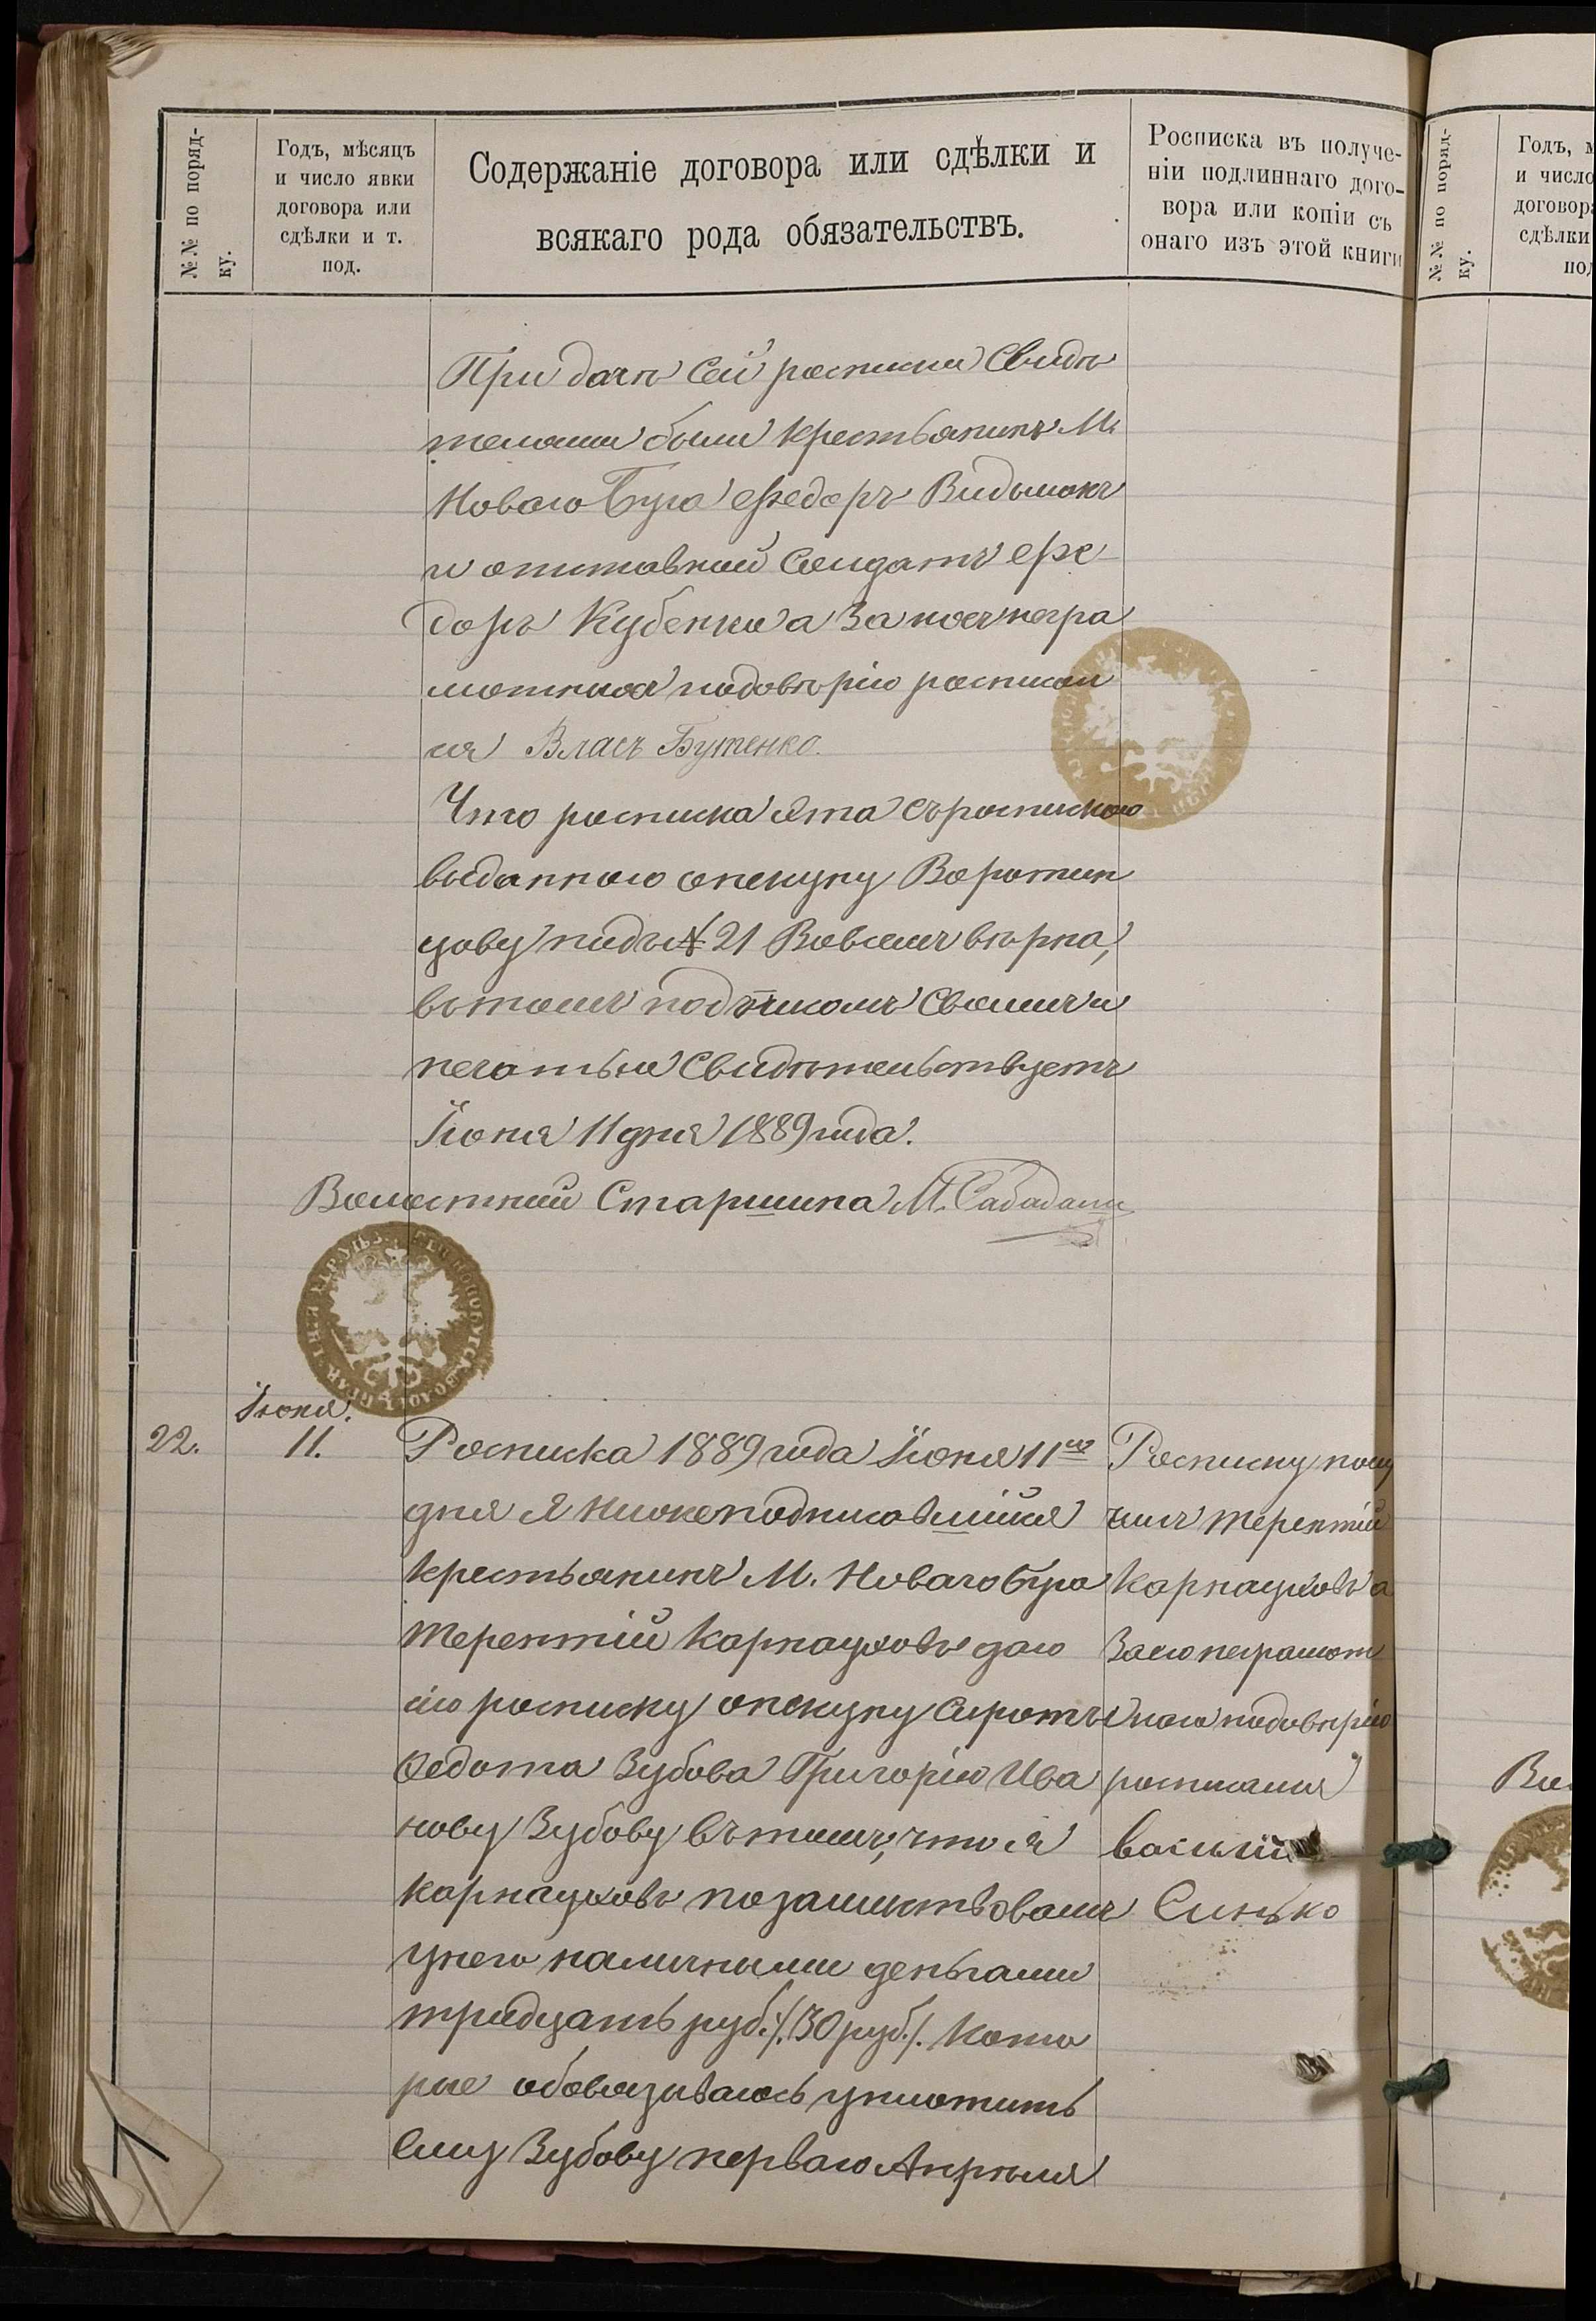 №№ по поряд-
ку.
Годъ, мѣсяцъ
и число явки
договора или
сдѣлки и т.
под.
Содержаніе договора или сдѣлки и
всякаго рода обязательствъ.
Росписка въ получе-
ніи подлиннаго дого-
вора или копіи съ
онаго изъ этой книги
При дачѣ сей росписки свидѣ
телями были крестьянинъ М.
Новаго Буга Федоръ Видымокъ
и отставной солдатъ Фе
доръ Кубенко а за нихъ негра
мотныхъ подовѣрію росписал
ся Власъ Бутенко.
Что росписка эта съ роспискою
выданною опекуну Воротын
цову подъ № 21 вовсемъ вѣрна,
вътомъ подписомъ своимъ и
печатью свидѣтельствуетъ
Іюня 11 дня 1889 года.
Волостной Старшина М. Сабадаш
Іюня.
22.
11.
Росписка 1889 года Іюня 11го
дня Я нижеподписавшійся
крестьянинъ М. Новаго Буга
Терентій Карнауховъ даю
сію росписку опекуну сиротъ
Федота Зубова Григорію Ива
нову Зубову въ томъ, что я
Карнауховъ позаимствовалъ
унего наличными деньгами
тридцать руб. /30 руб./ кото
рые обовязываюсь уплотить
ему Зубову перваго Апрѣля
Росписку полу
чилъ Терентій
Карнауховъ а
за его неграмот
наго подовѣрію
росписался
василій
Синько
№№ по поряд-
ку.
Годъ, м
и число
договора
сдѣлки
под